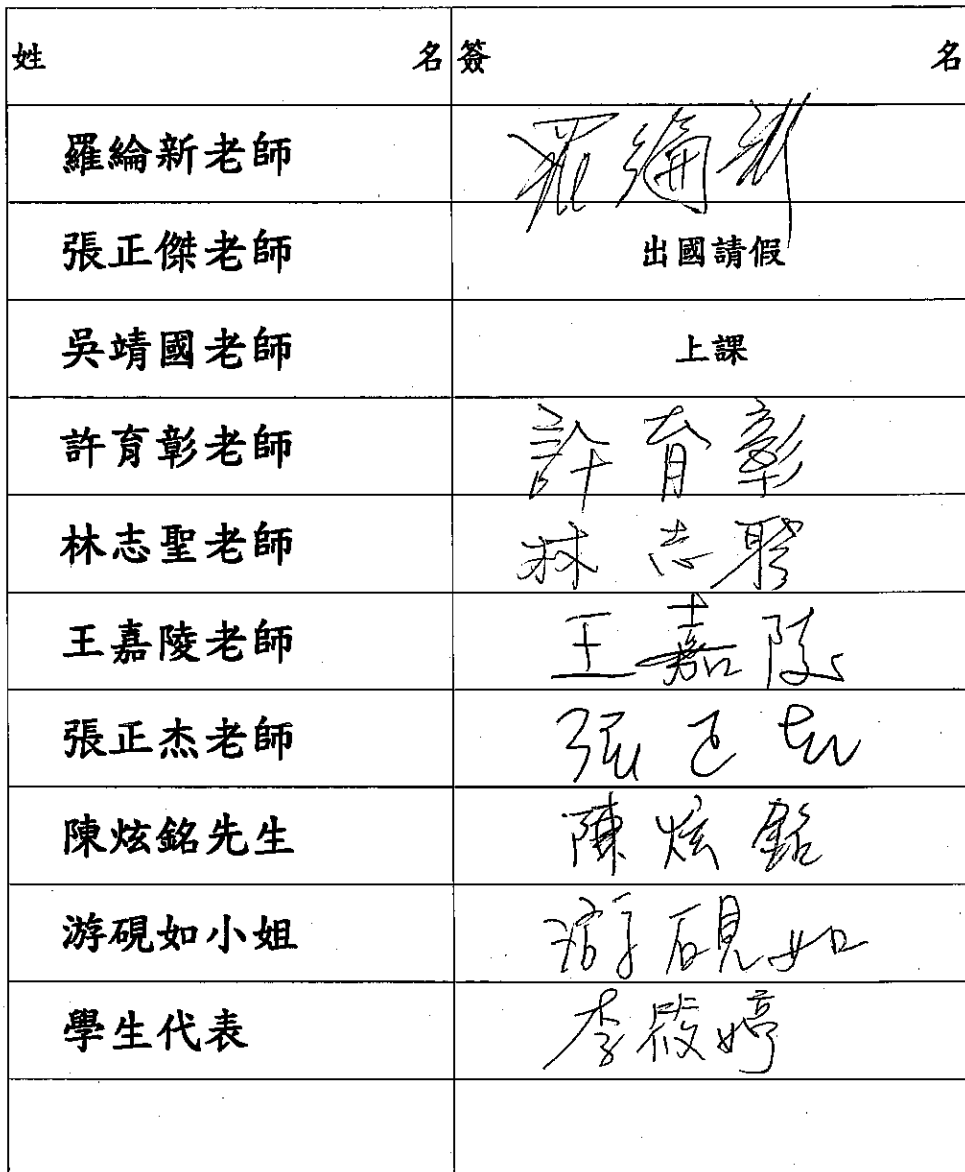 姓名 簽名
羅綸新老師 羅綸新
張正傑老師 出國請假
吳靖國老師 上課
許育彰老師 許育彰
林志聖老師 林志聖
王嘉陵老師 王嘉陵
張正杰老師 張正杰
陳炫銘先生 陳炫銘
游硯如小姐 游硯如
學生代表 李筱婷